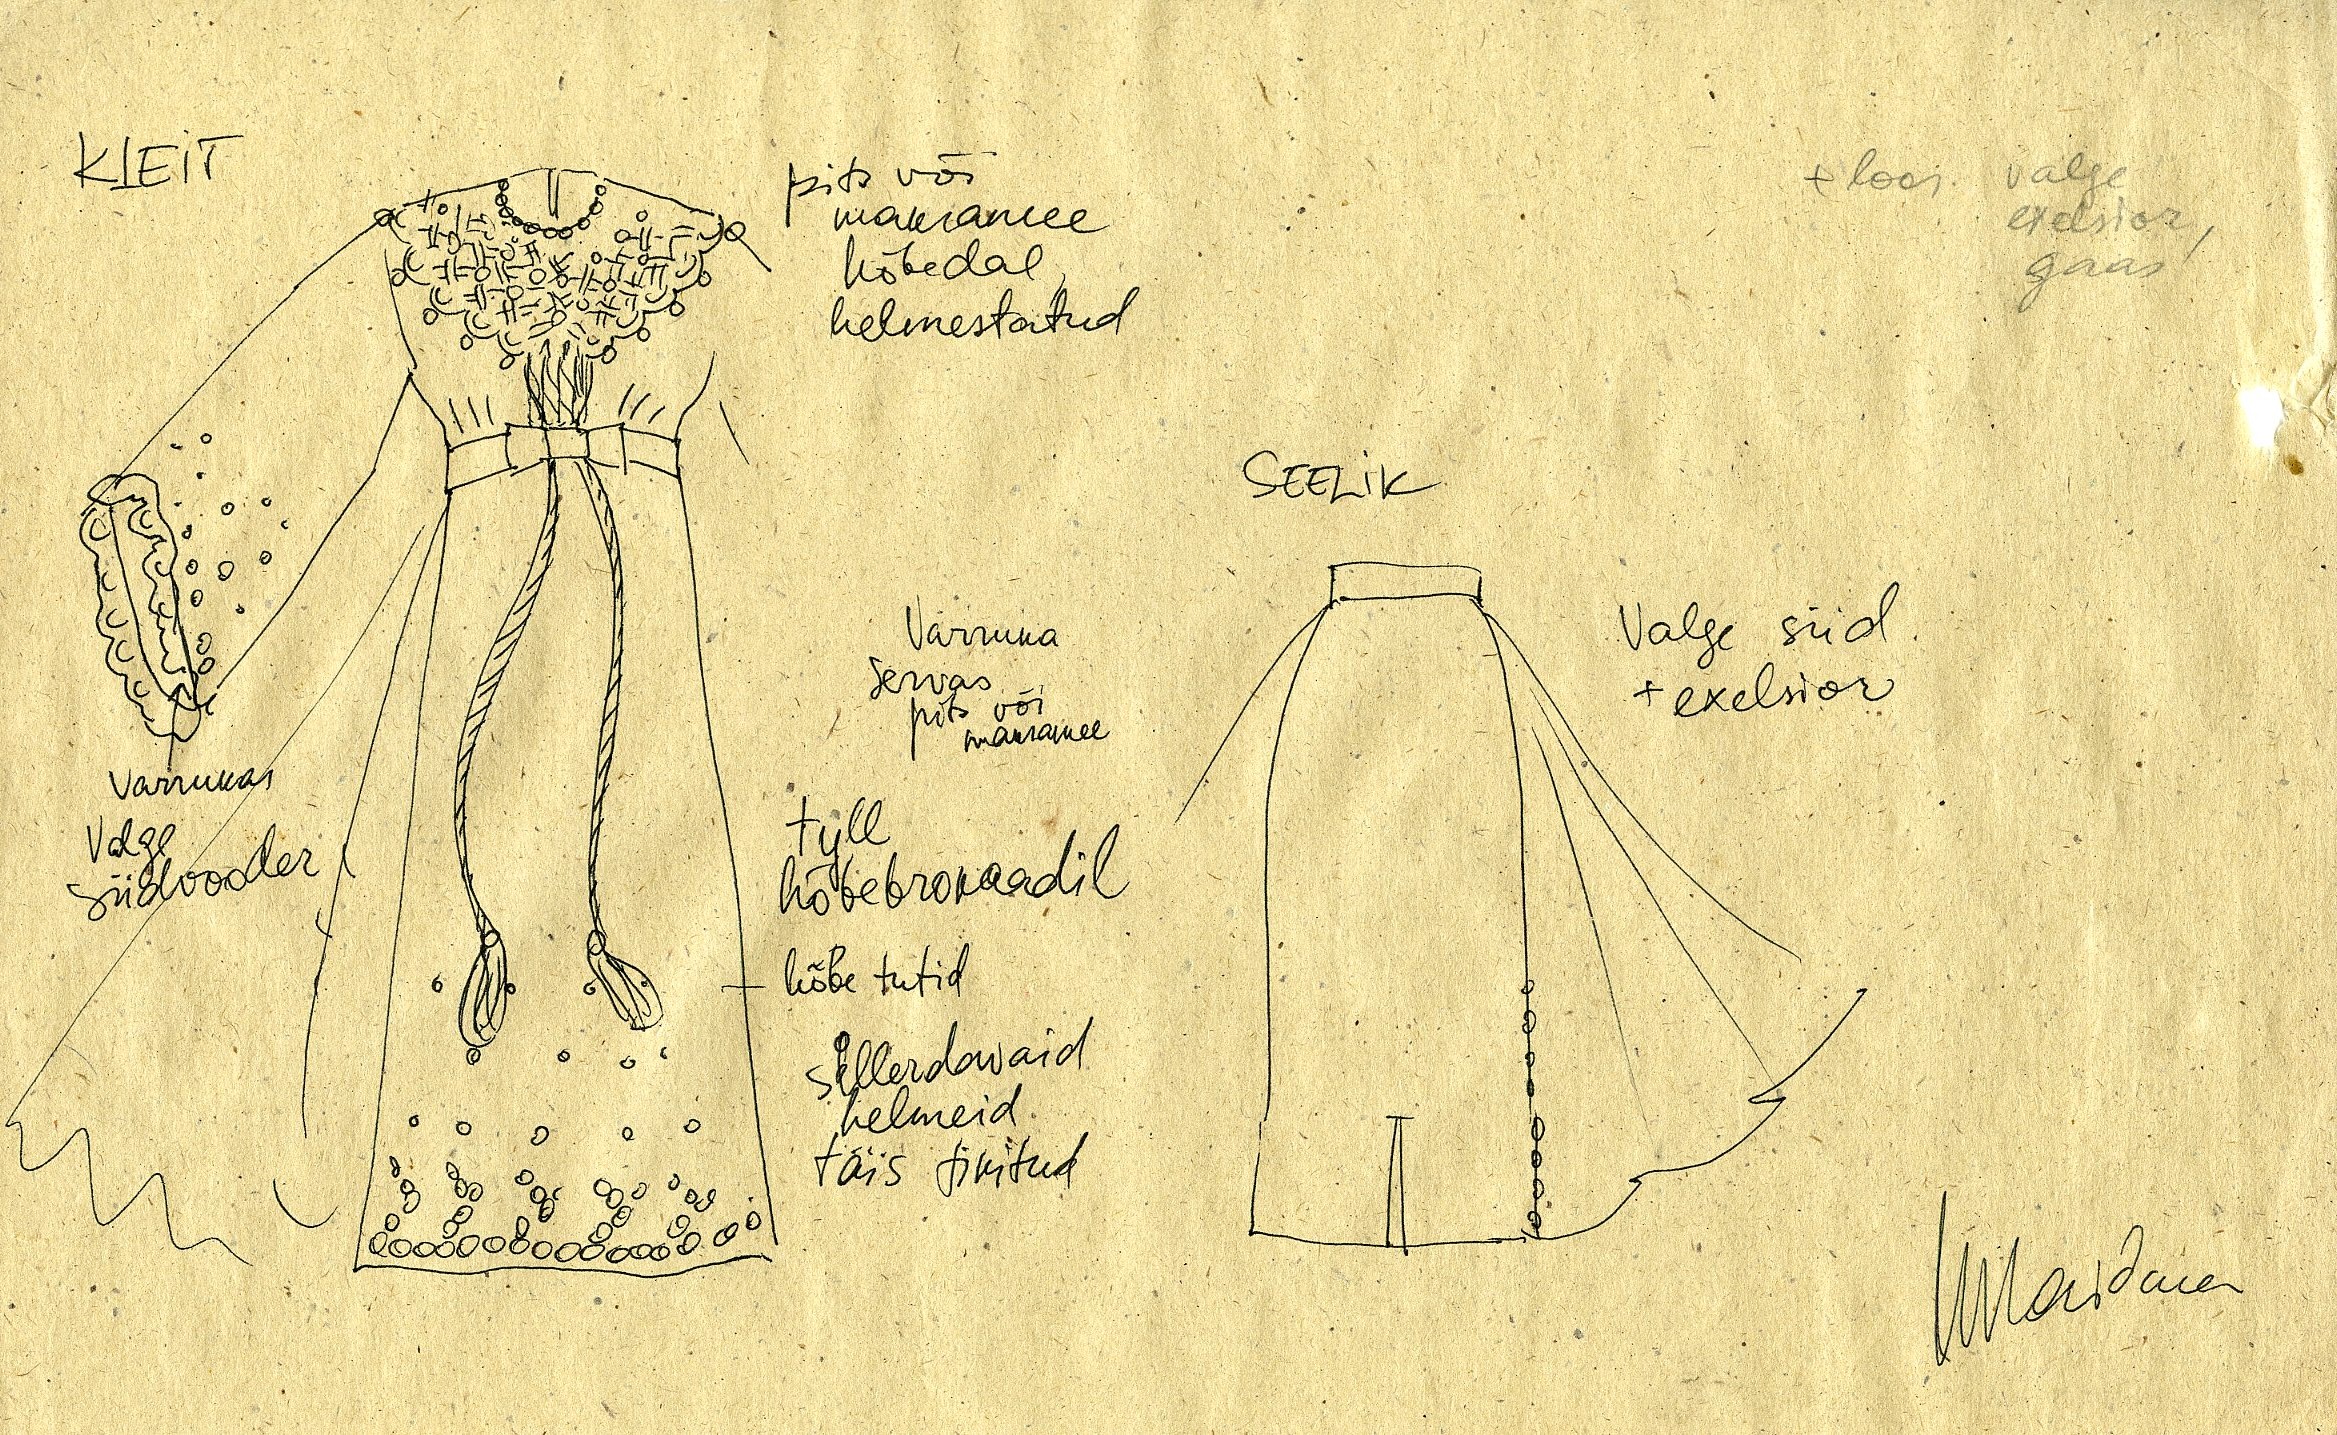 KLEIT
pits või
makramee
hõbedal,
helmestatud
+ loor valge
exelsior,
gaas
SEELIK
Valge siid
+ exelsior
Varruka
servas
pits või
makramee
Varrukas
Valge
siidvooder
tyll
hõbebrokaadil
hõbe tutid
sillerdavaid
helmeid
täis tikitud